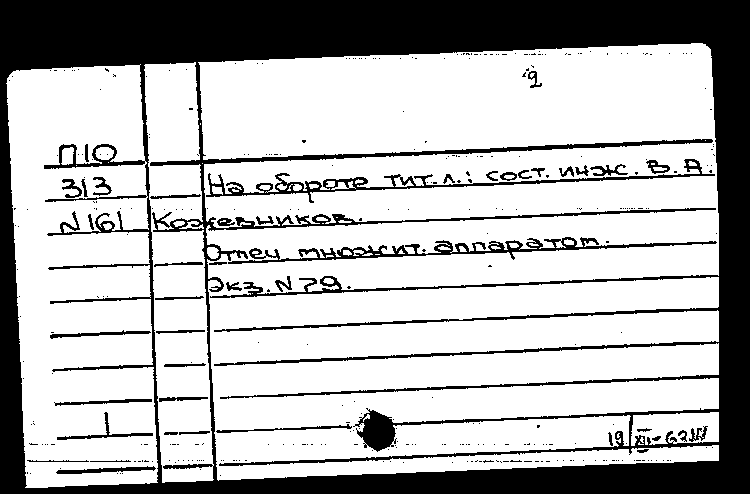 2
П10
313 На обороте тит.л.: сост. инж. В.А.
N 161 Кожевников.
Отпеч. множит. аппаратом.
Экз. N 79.
1
19/XII-62